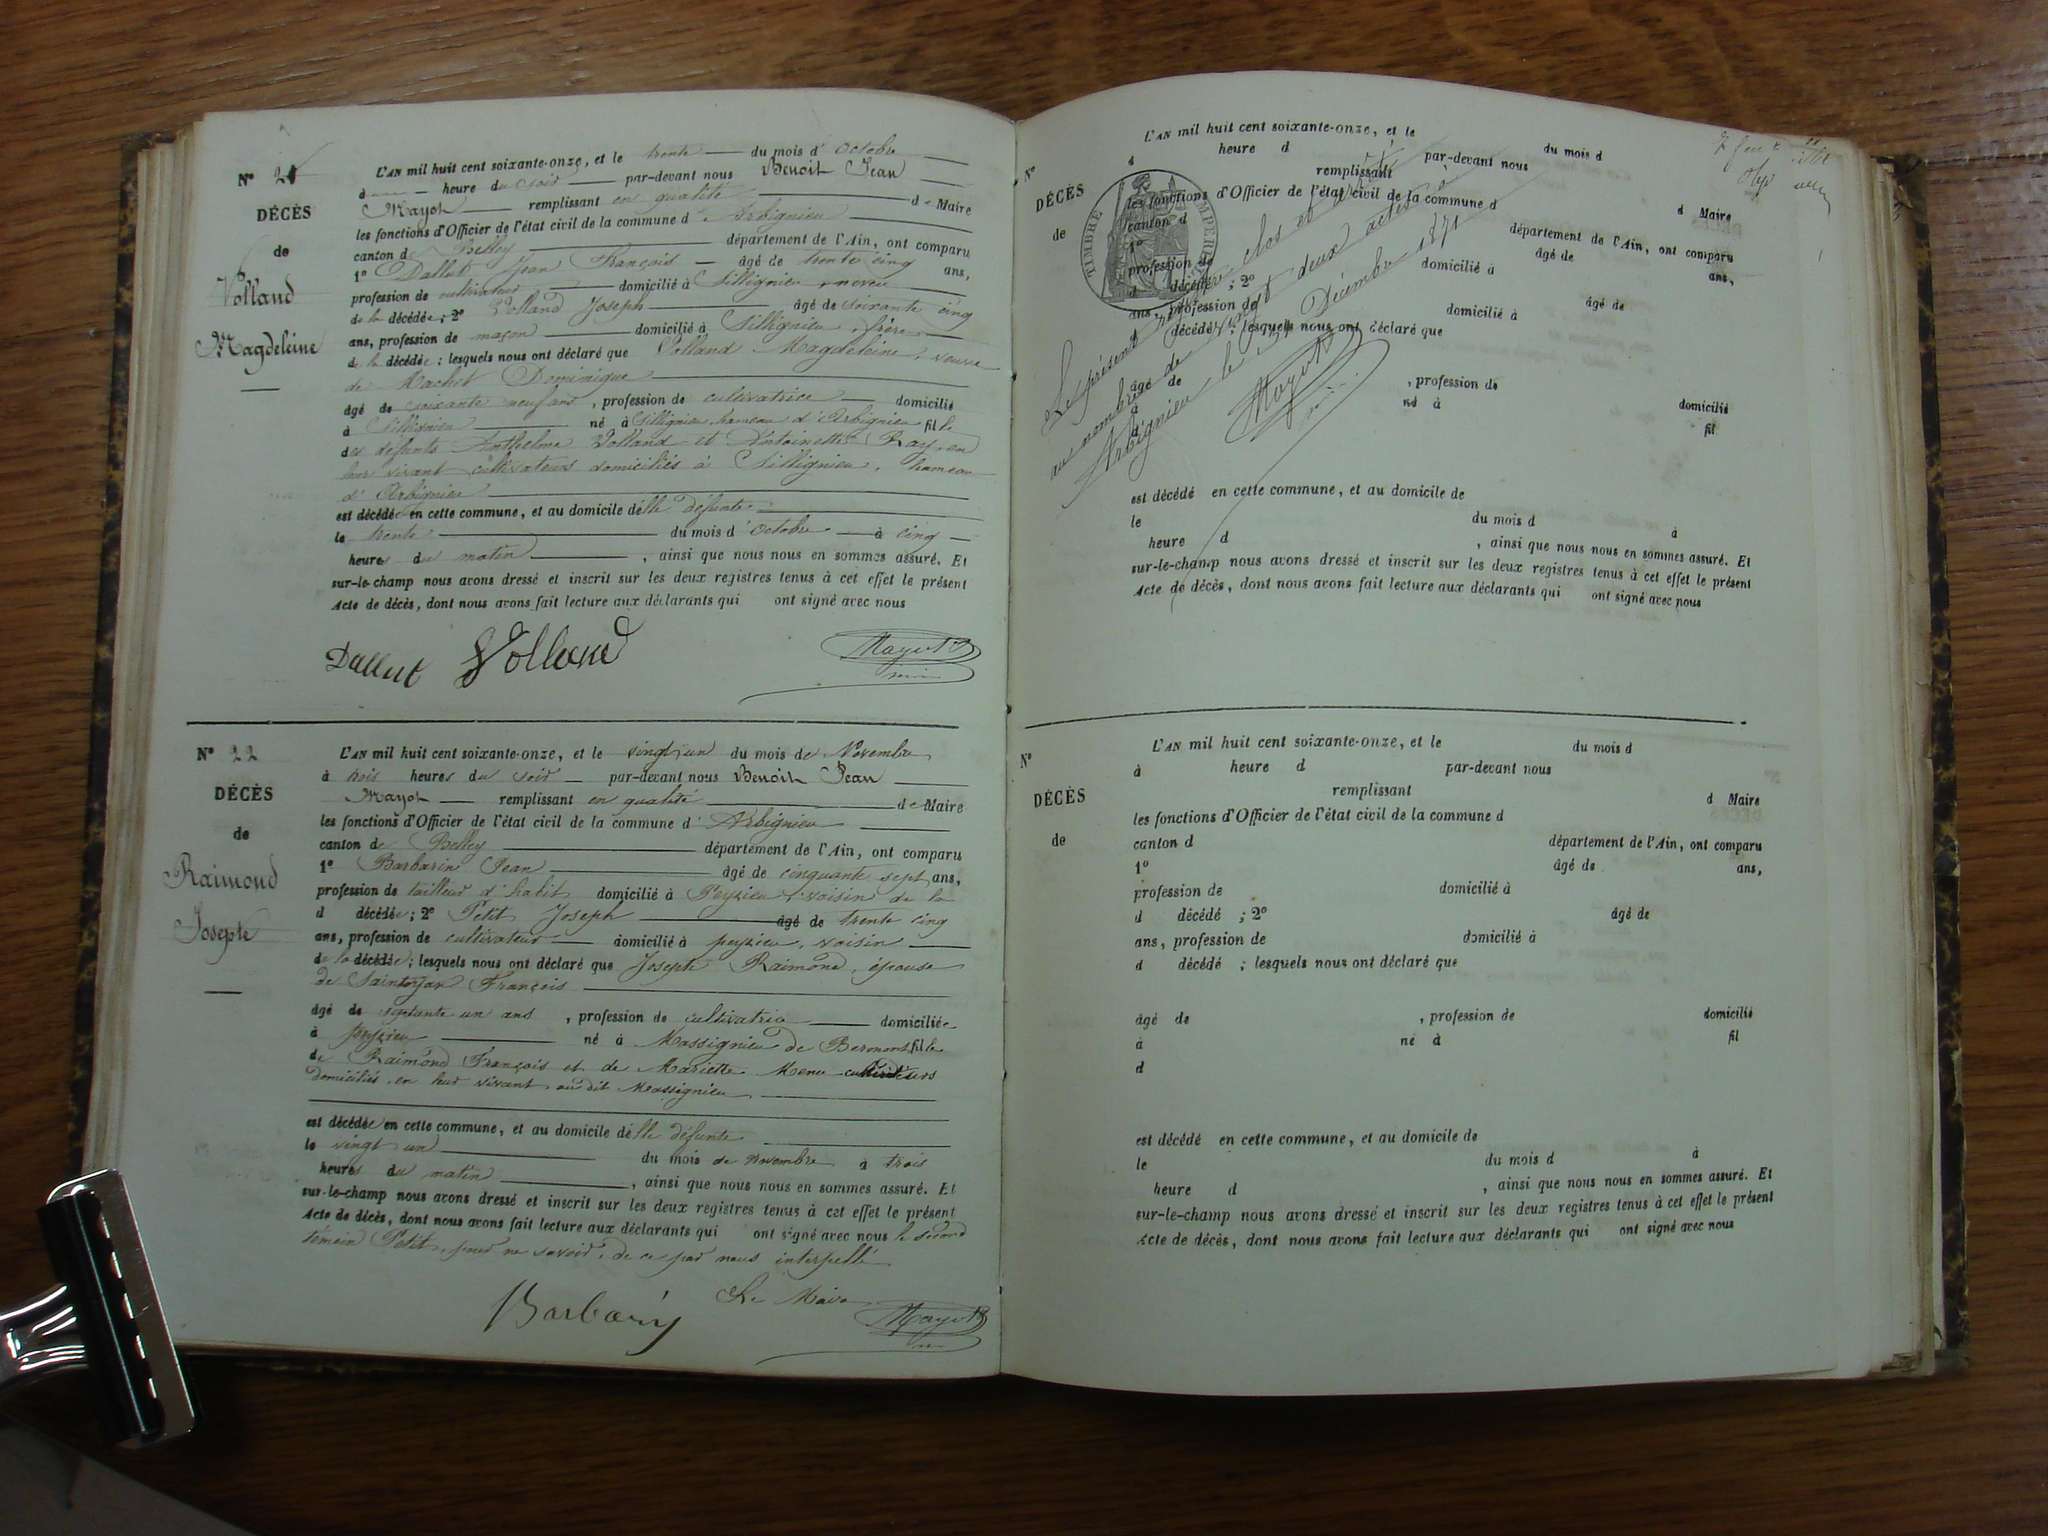 N° 21
DÉCÈS
de
Volland
Magdeleine
L'AN mil huit cent soixante-onze, et le trente du mois d'Octobre
d une heure du soir par-devant nous Benoit Jean
Mayot remplissant en qualité de Maire
les fonctions d'Officier de l'état civil de la commune d'Arbignieu
canton de Belley département de l'Ain, ont comparu
1° Dallut Jean François âgé de trente cinq ans,
profession de cultivateur domicilié à Sillignieu neveu
de la décédée; 2° Volland Joseph âgé de soixante cinq
ans, profession de maçon domicilié à Sillignieu, frère
de la décédée; lesquels nous ont déclaré que Volland Magdeleine, veuve
de Machet Dominique
âgé de soixante neuf ans, profession de cultivatrice domicilié
à Sillignieu né à Sillignieu hameau d'Arbignieu fille
des défunts Anthelme Volland et Antoinette Ray, en
leur vivant cultivateurs domiciliés à Sillignieu, hameau
d'Arbignieu
est décédée en cette commune, et au domicile de lle défunte
le trente du mois d'octobre à cinq
heures du matin, ainsi que nous nous en sommes assuré. Et
sur-le-champ nous avons dressé et inscrit sur les deux registres tenus à cet effet le présent
Acte de décès, dont nous avons fait lecture aux déclarants qui ont signé avec nous
Dallut Volland Mayot B
N° 22
DÉCÈS
de
Raimond
Josephte
L'AN mil huit cent soixante-onze, et le vingt un du mois de Novembre
à trois heures du soir par-devant nous Benoit Jean
Mayot remplissant en qualité de Maire
les fonctions d'Officier de l'état civil de la commune d'Arbignieu
canton de Belley département de l'Ain, ont comparu
1° Barbarin Jean âgé de cinquante sept ans,
profession de tailleur d'habit domicilié à Peyzieu voisin de la
d décédée; 2° Petit Joseph âgé de trente cinq
ans, profession de cultivateur domicilié à peyzieu, voisin
de la décédée; lesquels nous ont déclaré que Josephte Raimond, épouse
de François
âgé de septante un ans, profession de cultivatrice domiciliée
à peyzieu né à Massignieu de fille
de Raimond François et de Mariette Menu cultivateurs
domiciliés en leur vivant au dit Massignieu
est décédée en cette commune, et au domicile de lle défunte
le vingt un du mois de novembre à trois
heures du matin, ainsi que nous nous en sommes assuré. Et
sur-le-champ nous avons dressé et inscrit sur les deux registres tenus à cet effet le présent
Acte de décès, dont nous avons fait lecture aux déclarants qui ont signé avec nous le second
témoin Petit, pour ne savoir, de ce par nous interpellé
Le Maire
Barbarin Mayot B
L'AN mil huit cent soixante-onze, et le du mois d
N° d heure d par-devant nous
DÉCÈS remplissant d Maire
de les fonctions d'Officier de l'état civil de la commune d
canton d département de l'Ain, ont comparu
1° âgé de ans,
profession de domicilié à
d décédé ; 2° âgé de
ans, profession de domicilié à
d décédé ; lesquels nous ont déclaré que
âgé de , profession de domicilié
à né à fil
d
TIMBRE IMPÉRIAL
Le présent registre clos et arrêté à
au nombre de vingt deux actes à
Arbignieu le Décembre 1871
Mayot B
est décédé en cette commune, et au domicile de
le du mois d à
heure d , ainsi que nous nous en sommes assuré. Et
sur-le-champ nous avons dressé et inscrit sur les deux registres tenus à cet effet le présent
Acte de décès, dont nous avons fait lecture aux déclarants qui ont signé avec nous
N°
DÉCÈS
de
L'AN mil huit cent soixante-onze, et le du mois d
à heure d par-devant nous
remplissant d Maire
les fonctions d'Officier de l'état civil de la commune d
canton d département de l'Ain, ont comparu
1° âgé de ans,
profession de domicilié à
d décédé ; 2° âgé de
ans, profession de domicilié à
d décédé ; lesquels nous ont déclaré que
âgé de , profession de domicilié
à né à fil
d
est décédé en cette commune, et au domicile de
le du mois d à
heure d , ainsi que nous nous en sommes assuré. Et
sur-le-champ nous avons dressé et inscrit sur les deux registres tenus à cet effet le présent
Acte de décès, dont nous avons fait lecture aux déclarants qui ont signé avec nous